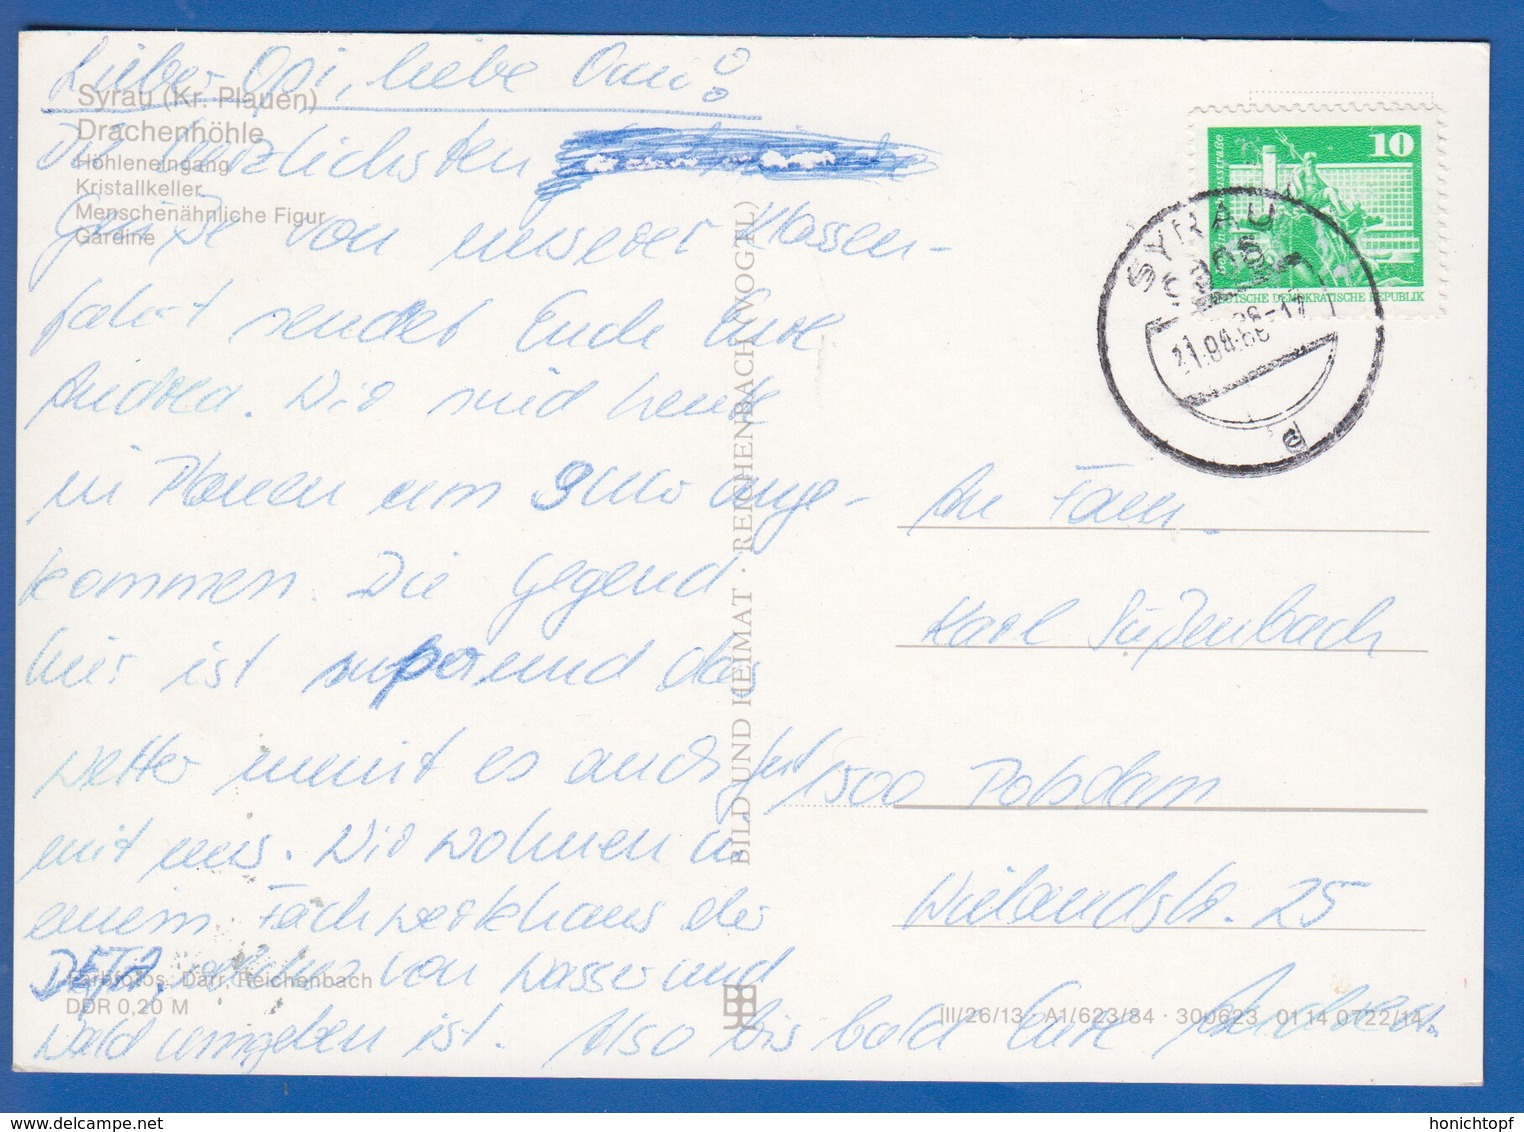 Lieber Opi, liebe Omi!
Die herzlichsten
Grüße von unserer Klassen-
fahrt sendet Euch Eure
Andrea. Wir sind heute
in Plauen um 9 Uhr ange-
kommen. Die Gegend
hier ist super und das
Wetter meint es auch gut
mit uns. Wir wohnen in
einem Fachwerkhaus der
DETA, von Wasser und
Wald umgeben ist. Also bis bald Eure Andrea
Syrau (Kr. Plauen)
Drachenhöhle
Höhleneingang
Kristallkeller
Menschenähnliche Figur
Gardine
Farbfotos: Darr, Reichenbach
DDR 0,20 M
BILD UND HEIMAT · REICHENBACH (VOGTL)
III/26/13 · A1/623/84 · 300623 01 14 0722/14
10
DEUTSCHE DEMOKRATISCHE REPUBLIK
SYRAU
e
An Fam.
Karl Süßenbach
1500 Potsdam
Wielandstr. 25
honichtopf